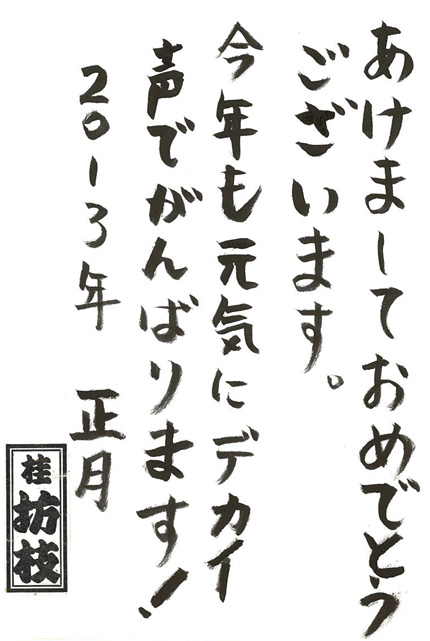 あけましておめでとう
ございます。
今年も元気にデカイ
声でがんばります!
2013年 正月
桂 坊枝